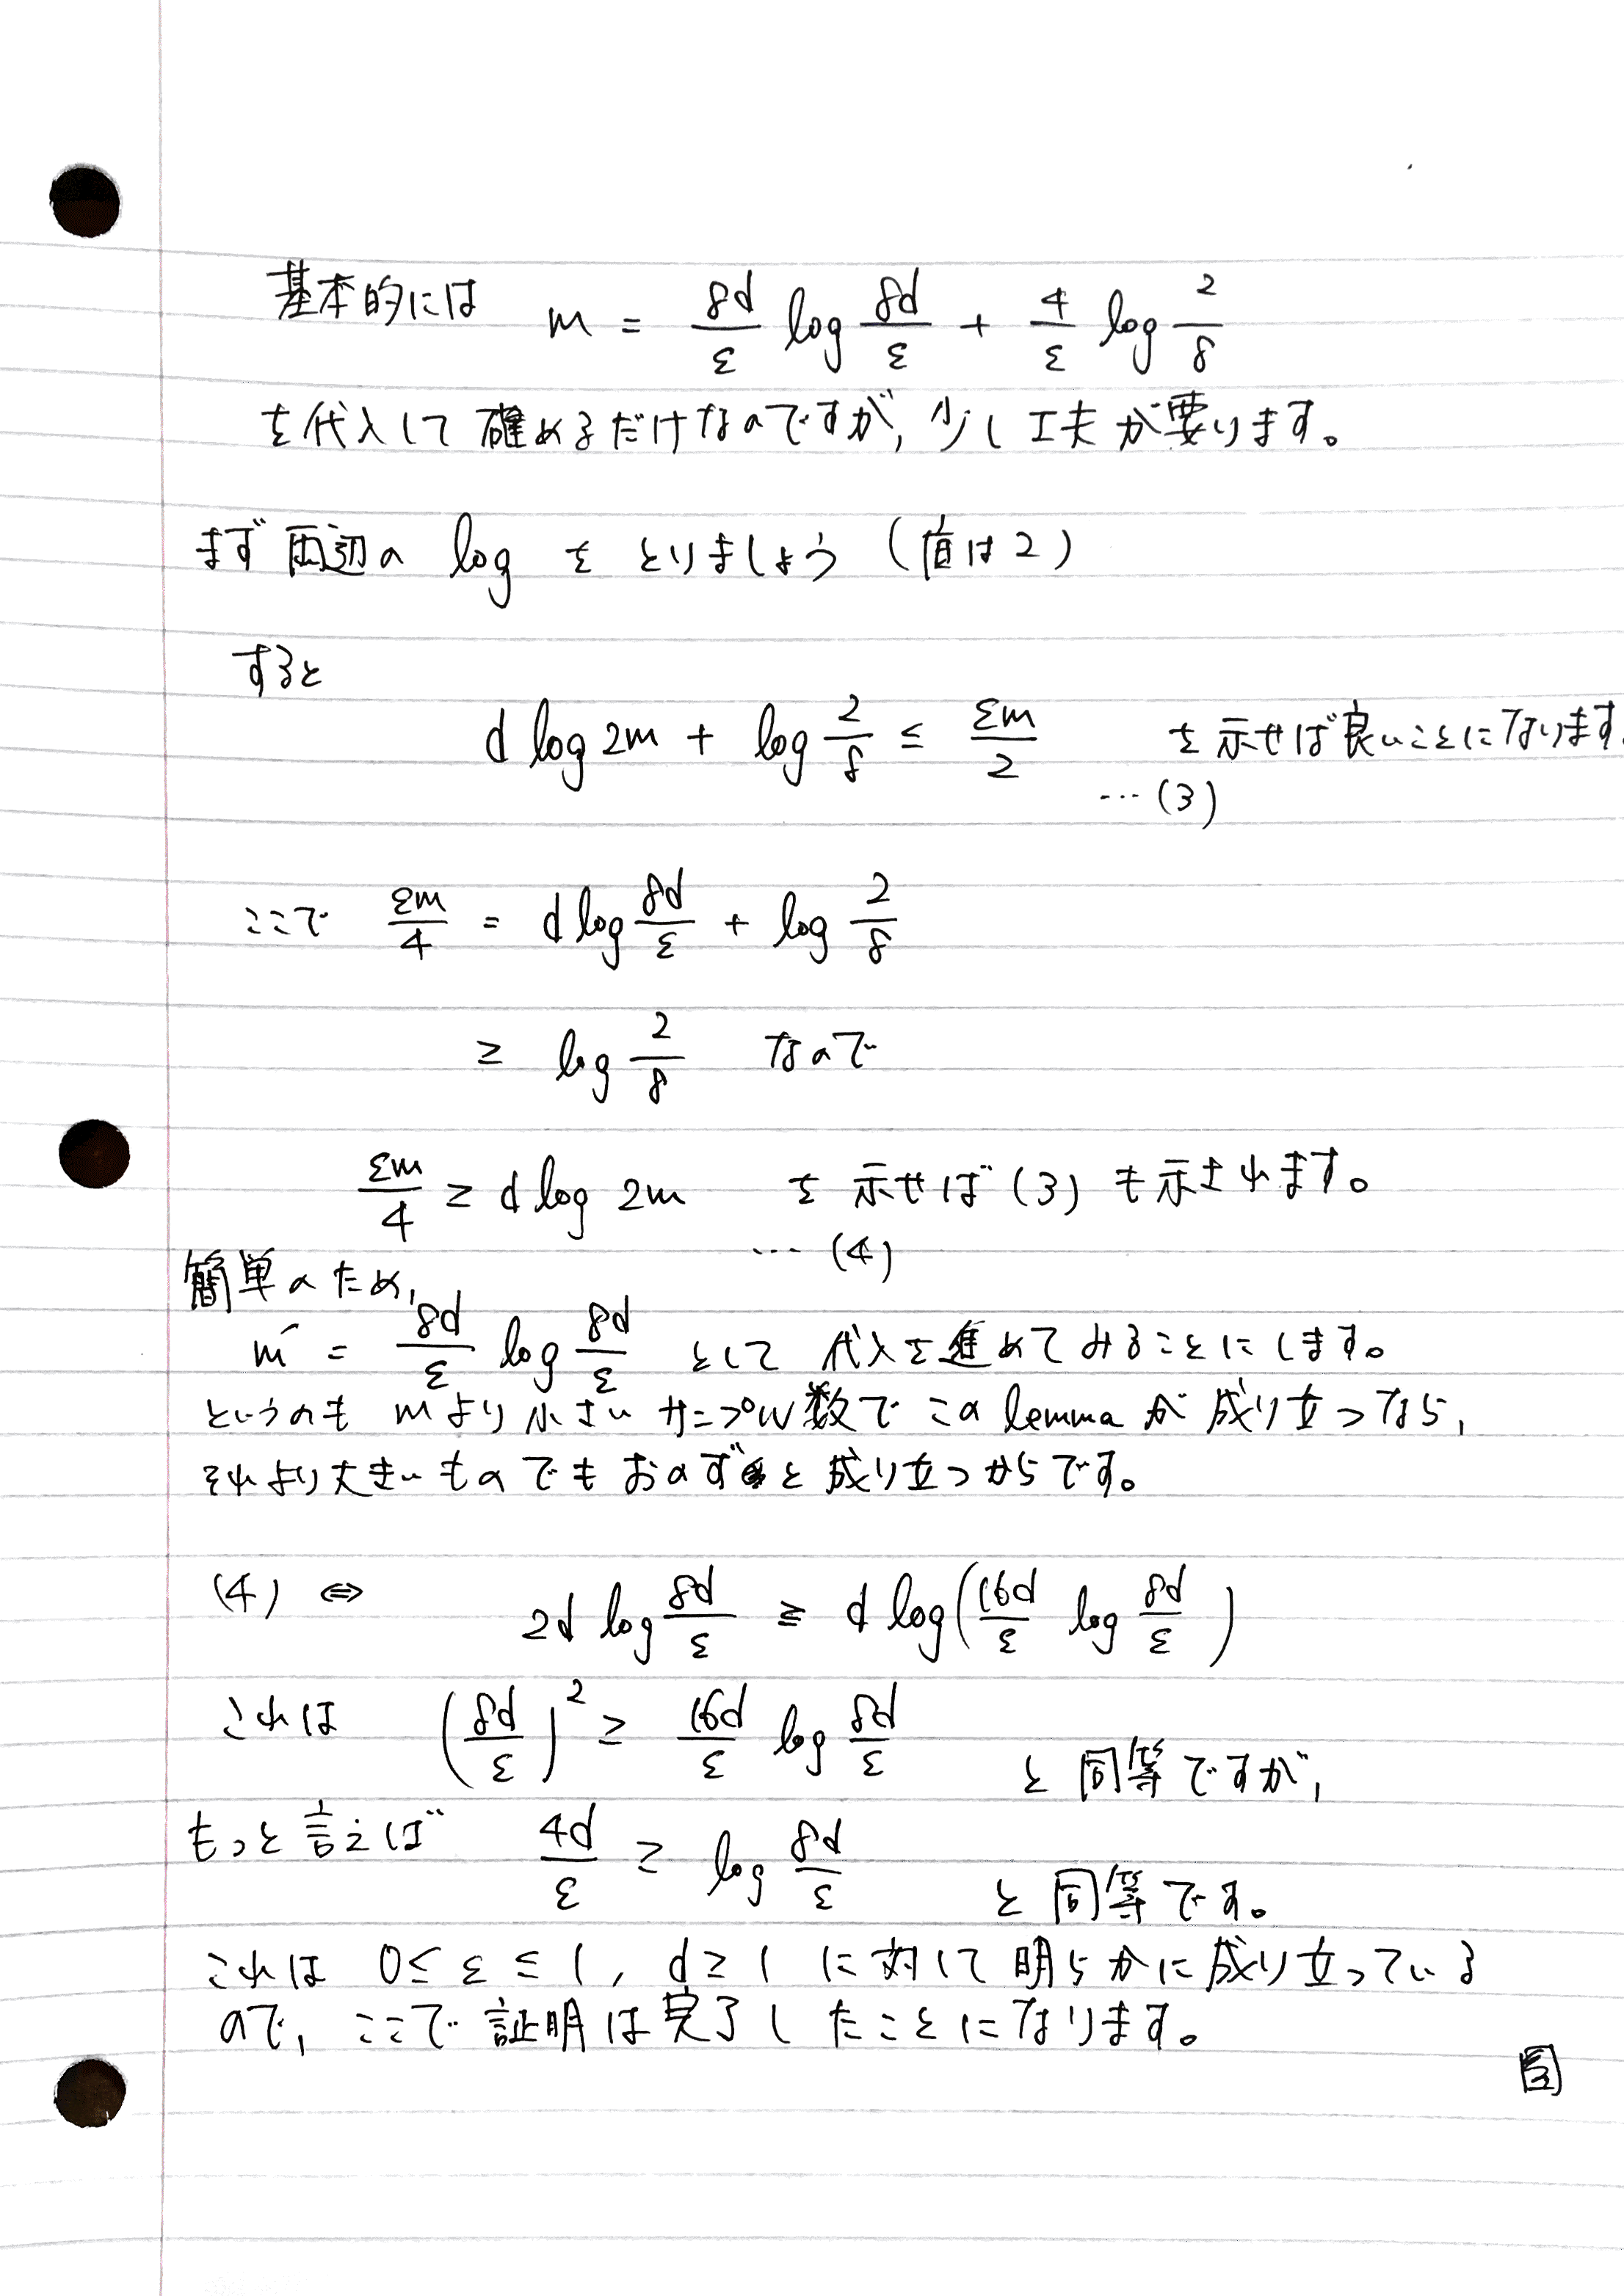 基本的には m = 8d/ε log 8d/ε + 4/ε log 2/δ
を代入して確めるだけなのですが, 少し工夫が要ります。
まず両辺の log をとりましょう (値は2)
すると
d log 2m + log 2/δ ≤ εm/2 を示せば良いことになります。
… (3)
ここで εm/4 = d log 8d/ε + log 2/δ
≥ log 2/δ なので
εm/4 ≥ d log 2m を示せば (3) も示されます。
… (4)
簡単のため,
m′ = 8d/ε log 8d/ε として 代入を進めてみることにします。
というのも mより小さいサンプル数でこのlemmaが成り立つなら,
それより大きいものでもおのずと成り立つからです。
(4) ⇔ 2d log 8d/ε ≥ d log(16d/ε log 8d/ε)
これは (8d/ε)² ≥ 16d/ε log 8d/ε と同等ですが,
もっと言えば 4d/ε ≥ log 8d/ε と同等です。
これは 0≤ε≤1, d≥1 に対して明らかに成り立っている
ので, ここで証明は完了したことになります。